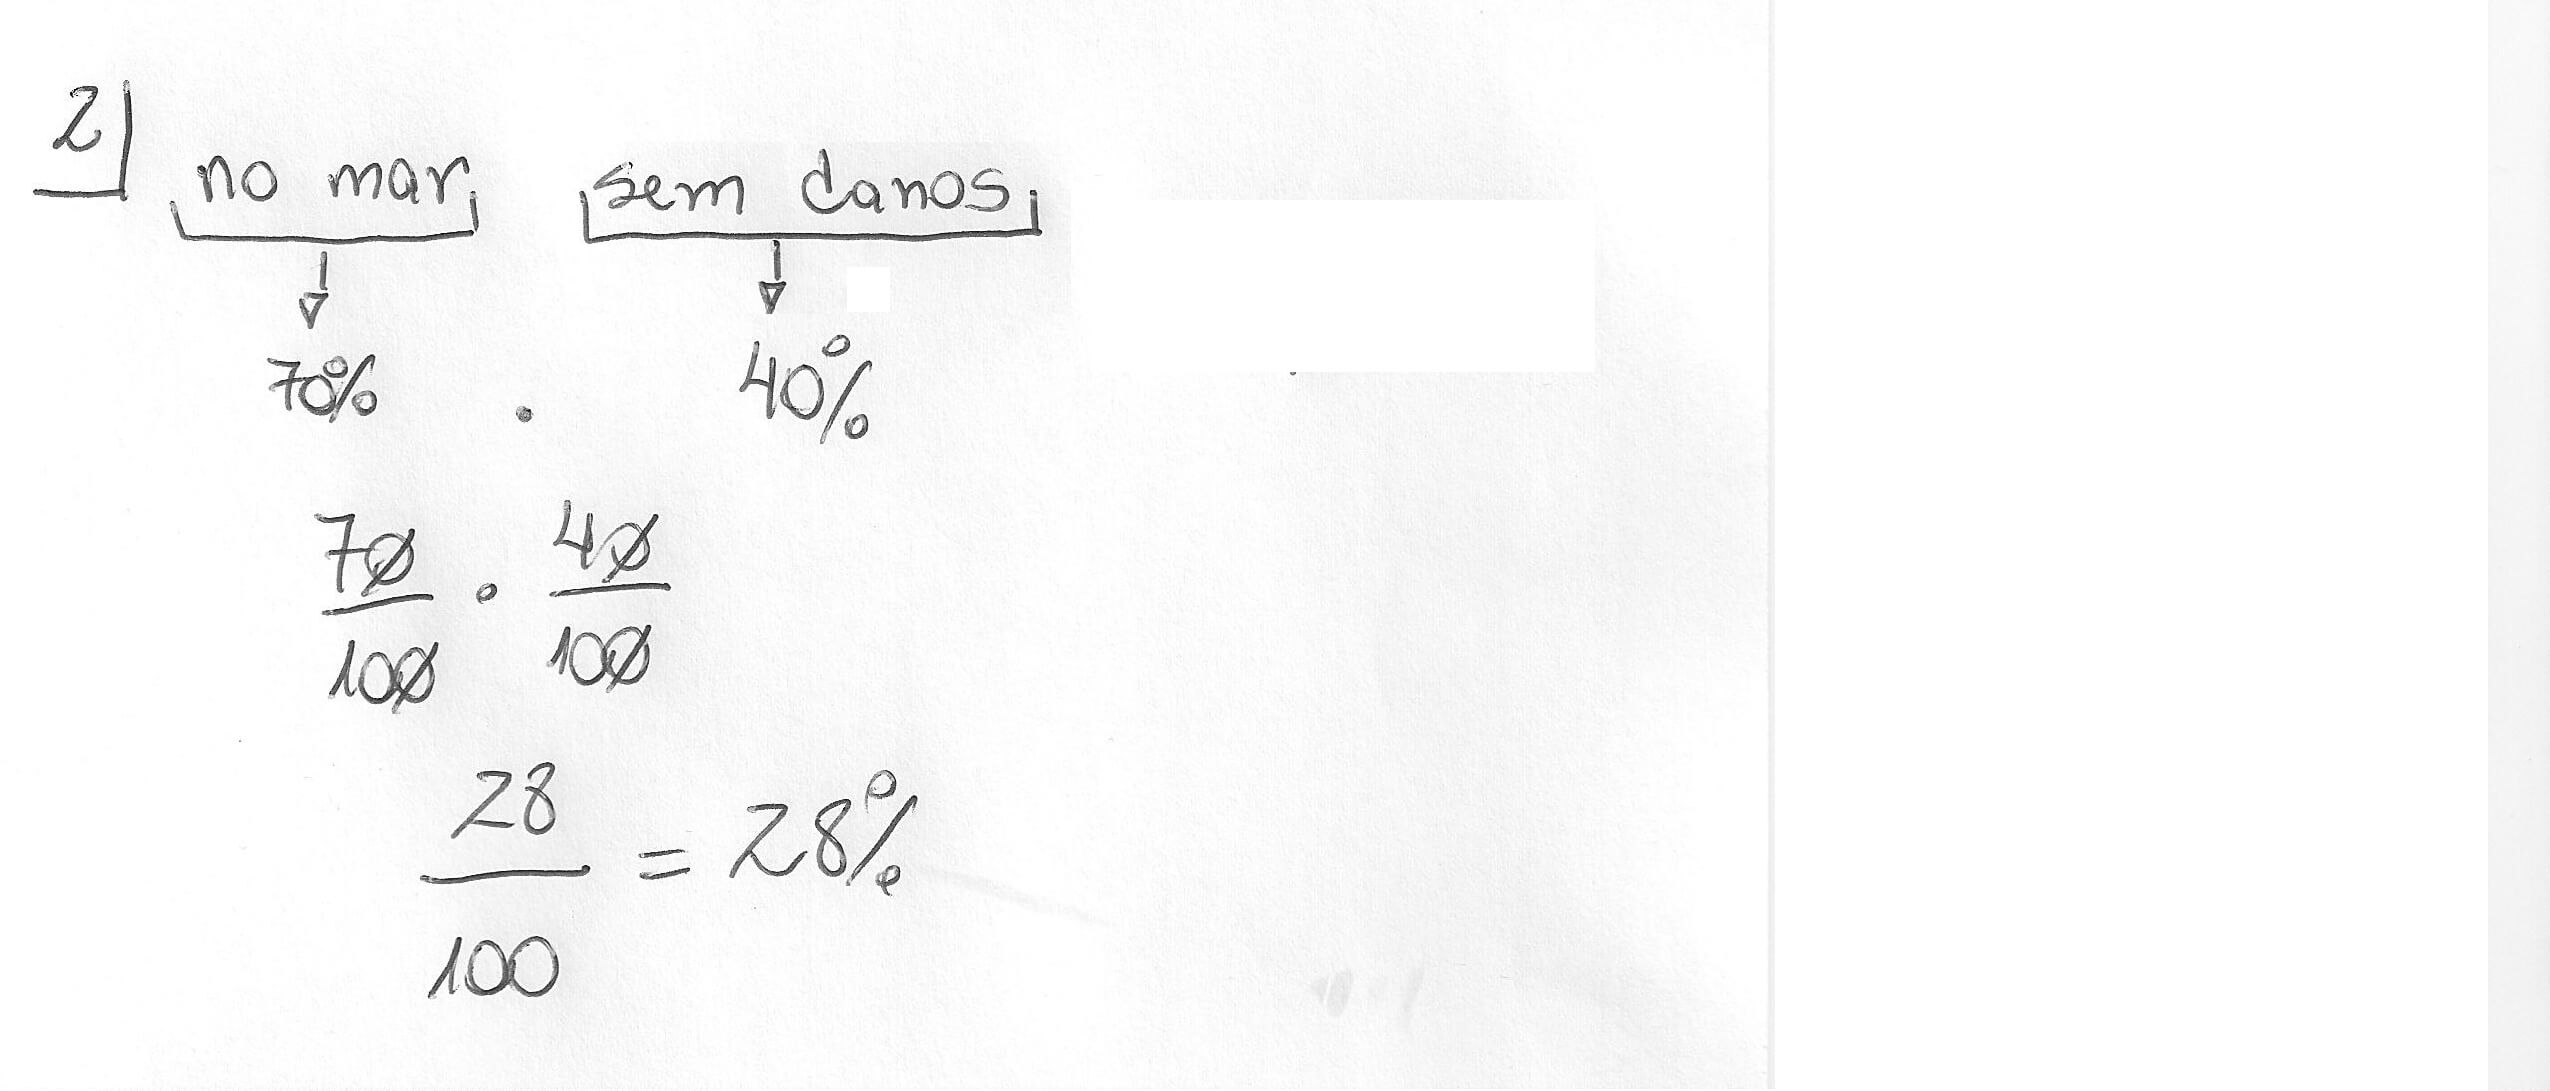 2)
no mar sem danos
70% . 40%
70/100 . 40/100
28/100 = 28%